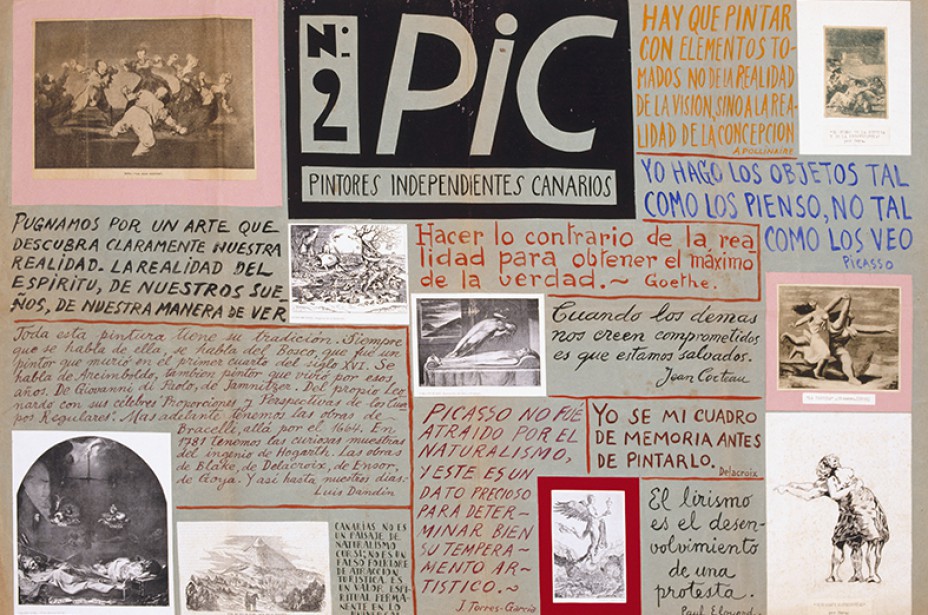 Nº 2
PiC
PINTORES INDEPENDIENTES CANARIOS
HAY QUE PINTAR
CON ELEMENTOS TO-
MADOS NO DE LA REALIDAD
DE LA VISION, SINO A LA REA-
LIDAD DE LA CONCEPCION
APOLLINAIRE
YO HAGO LOS OBJETOS TAL
COMO LOS PIENSO, NO TAL
COMO LOS VEO
PICASSO
PUGNAMOS POR UN ARTE QUE
DESCUBRA CLARAMENTE NUESTRA
REALIDAD. LA REALIDAD DEL
ESPÍRITU, DE NUESTROS SUE-
ÑOS, DE NUESTRA MANERA DE VER
Hacer lo contrario de la rea
lidad para obtener el máximo
de la verdad. ~ Goethe.
Cuando los demas
nos creen comprometidos
es que estamos salvados.
Jean Cocteau
Toda esta pintura tiene su tradición. Siempre
que se habla de ella, se habla del Bosco, que fué un
pintor que murió en el primer cuarto del siglo XVI. Se
habla de Arcimboldo, tambien pintor que vivió por esos
años. De Giovanni di Paolo, de Jamnitzer. Del propio Leo
nardo con sus célebres "Proporciones y Perspectivas de los Cuer
pos Regulares". Mas adelante tenemos las obras de
Bracelli, allá por el 1664. En
1781 tenemos las curiosas muestras
del ingenio de Hogarth. Las obras
de Blake, de Delacroix, de Ensor,
de Goya. Y asi hasta nuestros dias:
Luis Damdin
PICASSO NO FUÉ
ATRAIDO POR EL
NATURALISMO,
Y ESTE ES UN
DATO PRECIOSO
PARA DETER-
MINAR BIEN
SU TEMPERA-
MENTO AR-
TISTICO. ~
J. Torres-García
YO SE MI CUADRO
DE MEMORIA ANTES
DE PINTARLO.
Delacroix
El lirismo
es el desen-
volvimiento
de una
protesta.
Paul Eluard
CANARIAS NO ES
UN PAISAJE DE
NATURALISMO
CURSI; NO ES UN
FALSO FOLKLORE
DE ATRACCION
TURISTICA. ES
UN VALOR ESPI-
RITUAL PERMA-
NENTE EN LO
UNIVERSAL